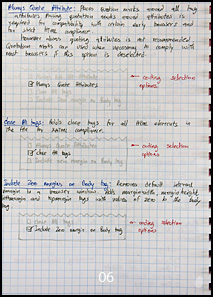 Always Quote Attribute: Places quotation marks around all tag
attributes. Placing quotation marks around attributes is
required for compatibility with certain early browsers and
for strict HTML compliance.
however always quoting attributes is not recommended
Quotation marks are used when necessary to comply with
most browsers if this option is deselected.
Always Quote Attributes
coding selection
options
Close All tags: Adds close tags for all HTML elements in
the file for XHTML compliance.
Always Quote Attributes
Close All tags
Include Zero margins on Body tag
coding selection
options
Include Zero margins on Body tag: Removes default internal
margin in a browser window. Adds marginwidth, marginheight,
leftmargin and topmargin tags with values of zero to the body
tag.
Close All tags
Include Zero margins on Body tag
coding selection
options
06